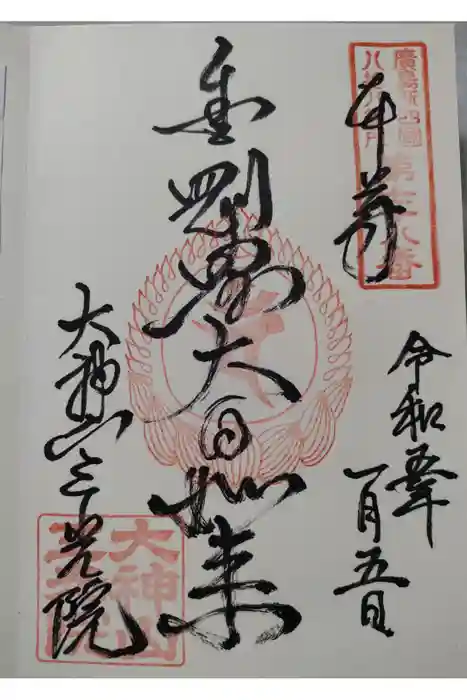 廣島新四國
八十八ヶ所
奉拝
令和五年
一月五日
金剛界大日如来
大神山三光院
大神山
三光院